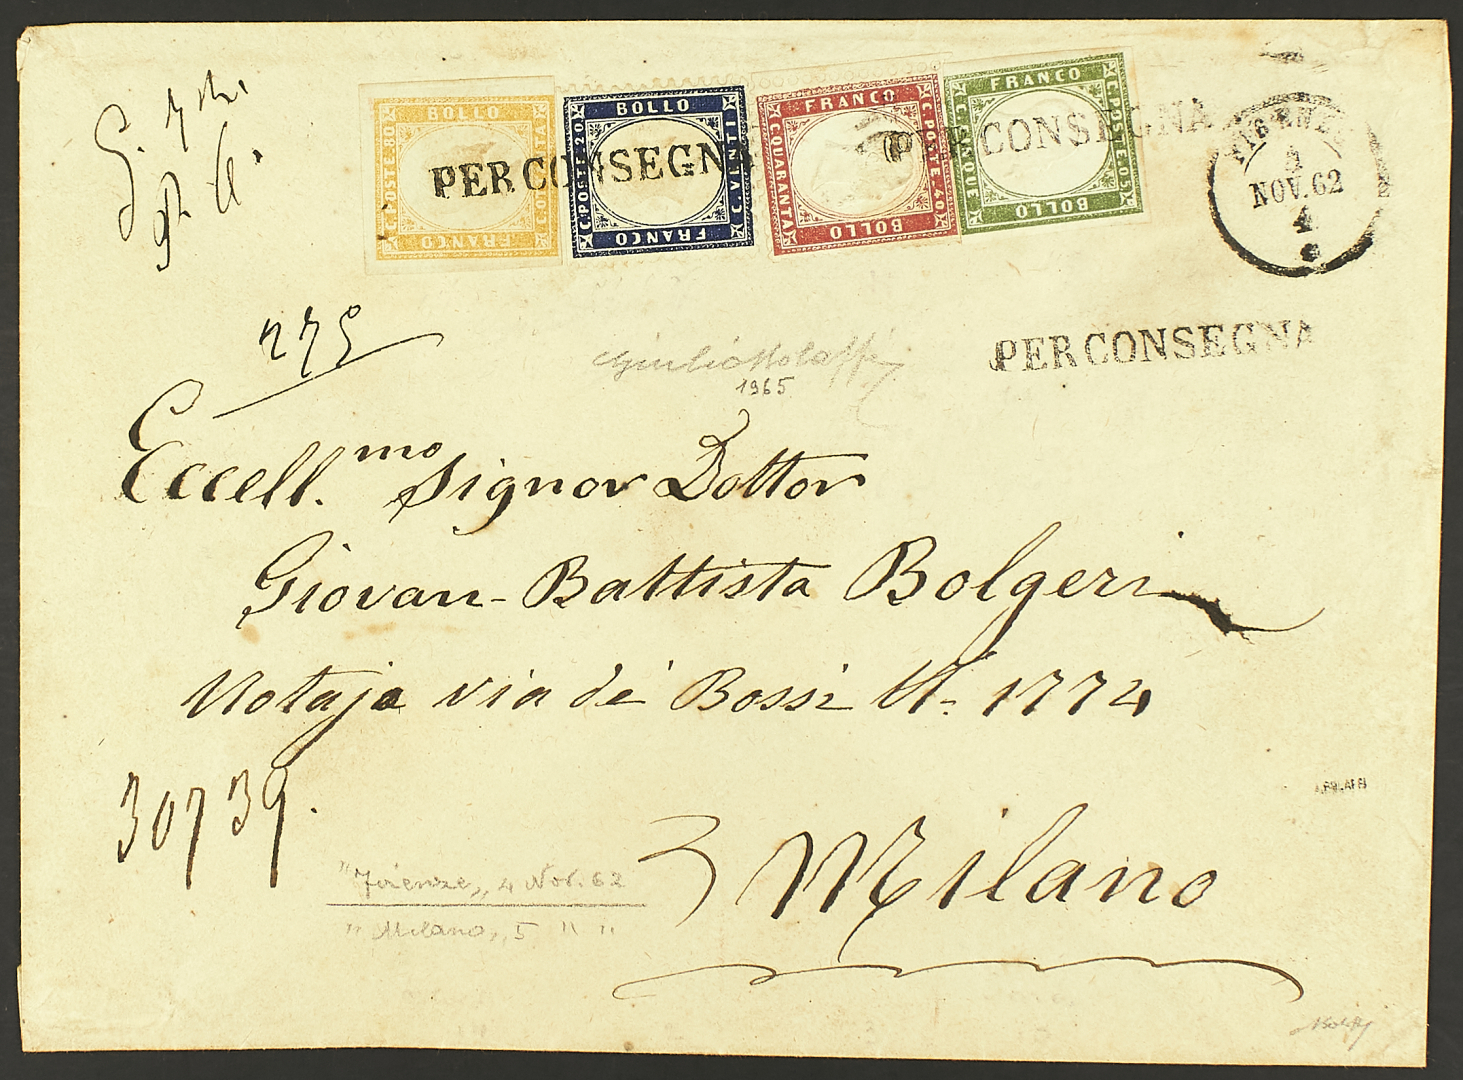 BOLLO
C. POSTE 80
C. OTTANTA
FRANCO
BOLLO
C. POSTE 20
C. VENTI
FRANCO
FRANCO
C. QUARANTA
C. POSTE 40
BOLLO
FRANCO
C. CINQUE
C. POSTE 05
BOLLO
PER CONSEGNA
PER CONSEGNA
4
NOV. 62
PER CONSEGNA
1965
Eccell.mo Signor Dottor
Giovan-Battista Bolgeri
Notajo via de' Bossi N. 1774
30739.
Milano
"Firenze" 4 Nov. 62
"Milano" 5 " "